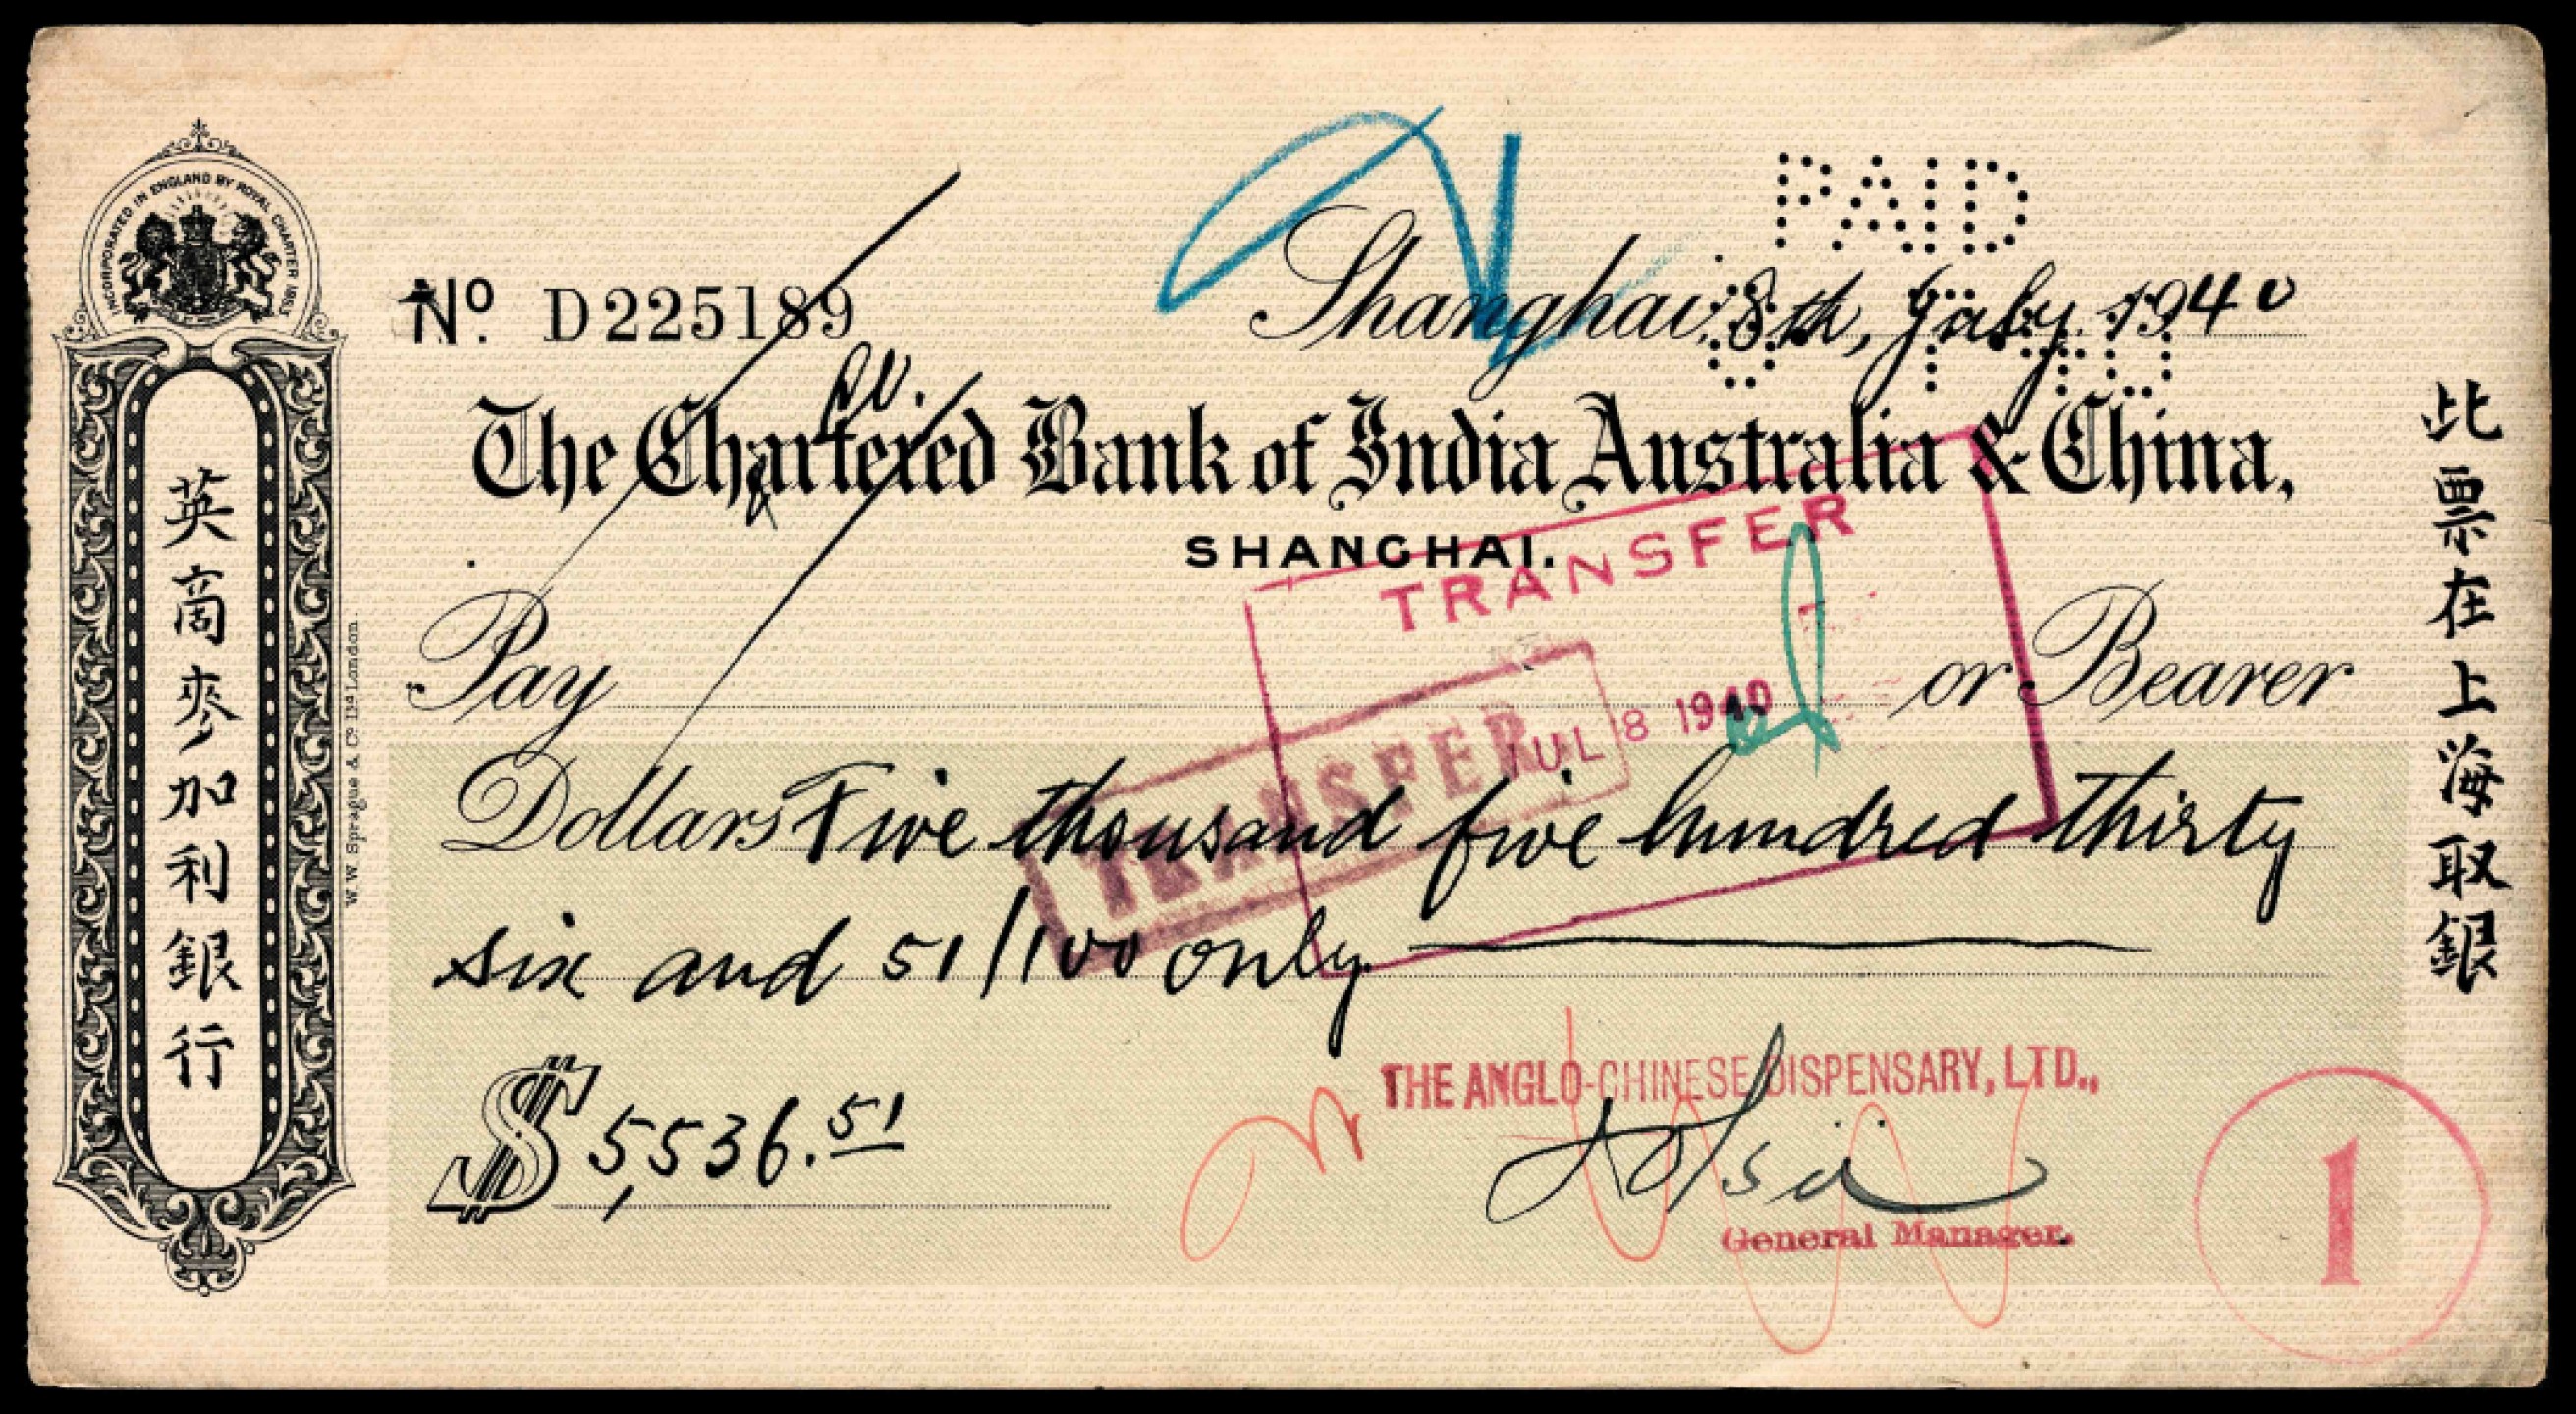 INCORPORATED IN ENGLAND BY ROYAL CHARTER 1853
英商麥加利銀行
W. W. Sprague & Co. Ltd. London.
PAID
No. D225189
Shanghai, 8th, July 1940
The Chartered Bank of India Australia & China,
SHANGHAI.
TRANSFER
JUL 8 1940
Pay or Bearer
TRANSFER
Dollars Five thousand five hundred thirty
six and 51/100 only
$ 5,536.51
THE ANGLO-CHINESE DISPENSARY, LTD.,
General Manager.
1
此票在上海取銀